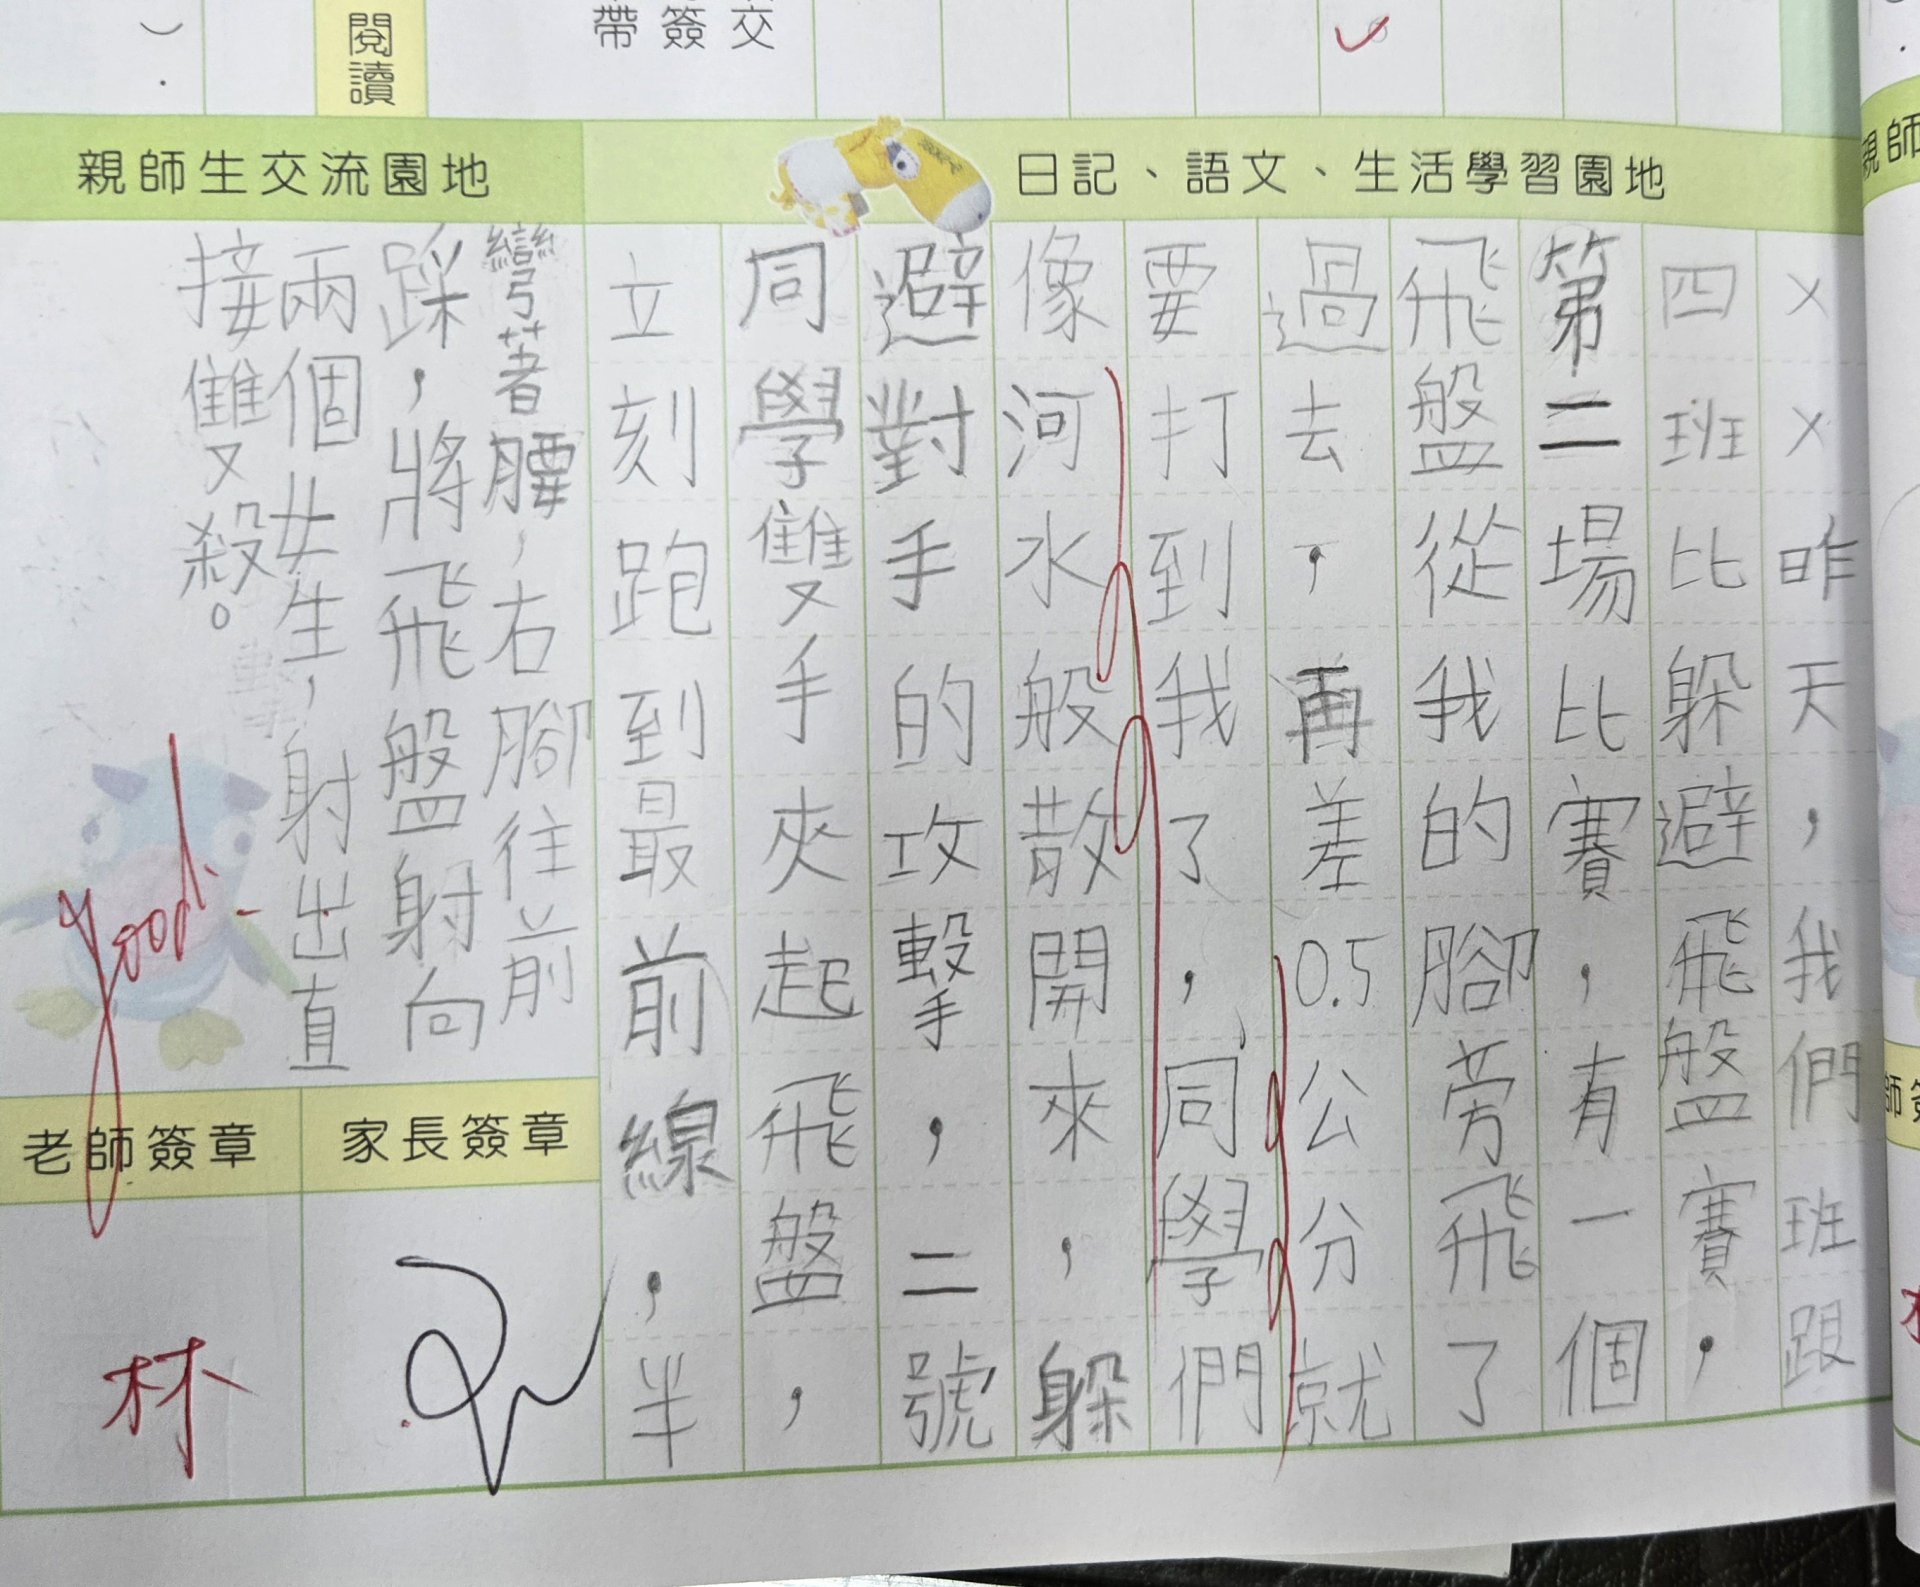 閱讀
帶簽交
日記、語文、生活學習園地
××昨天，我們班跟
四班比躲避飛盤賽，
第二場比賽，有一個
飛盤從我的腳旁飛了
過去，再差0.5公分就
要打到我了，同學們
像河水般散開來，躲
避對手的攻擊，二號
同學雙手夾起飛盤，
立刻跑到最前線，半
親師生交流園地
彎著腰，右腳往前
踩，將飛盤射向
兩個女生，射出直
接雙殺。
good!
家長簽章
老師簽章
林